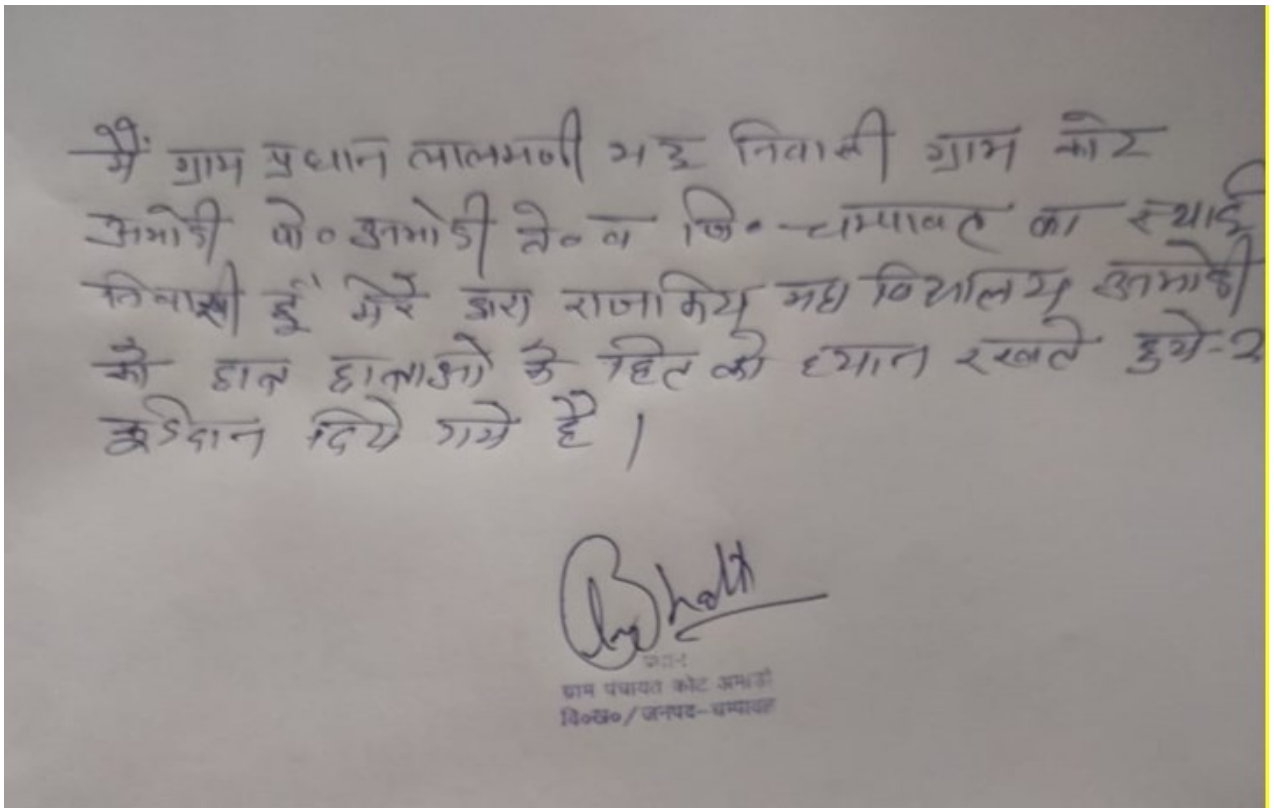 मैं ग्राम प्रधान लालमणी भट्ट निवासी ग्राम कोट
अमोडी पो० अमोडी ते० व जि० चम्पावत का स्थाई
निवासी हूँ मेरे द्वारा राजाकिय महा विद्यालय अमोडी
को छात्र छात्राओ के हित को ध्यान रखते हुये-2
कूडेदान दिये गये है ।
Bhatt
प्रधान
ग्राम पंचायत कोट अमोडी
वि०ख०/जनपद-चम्पावत